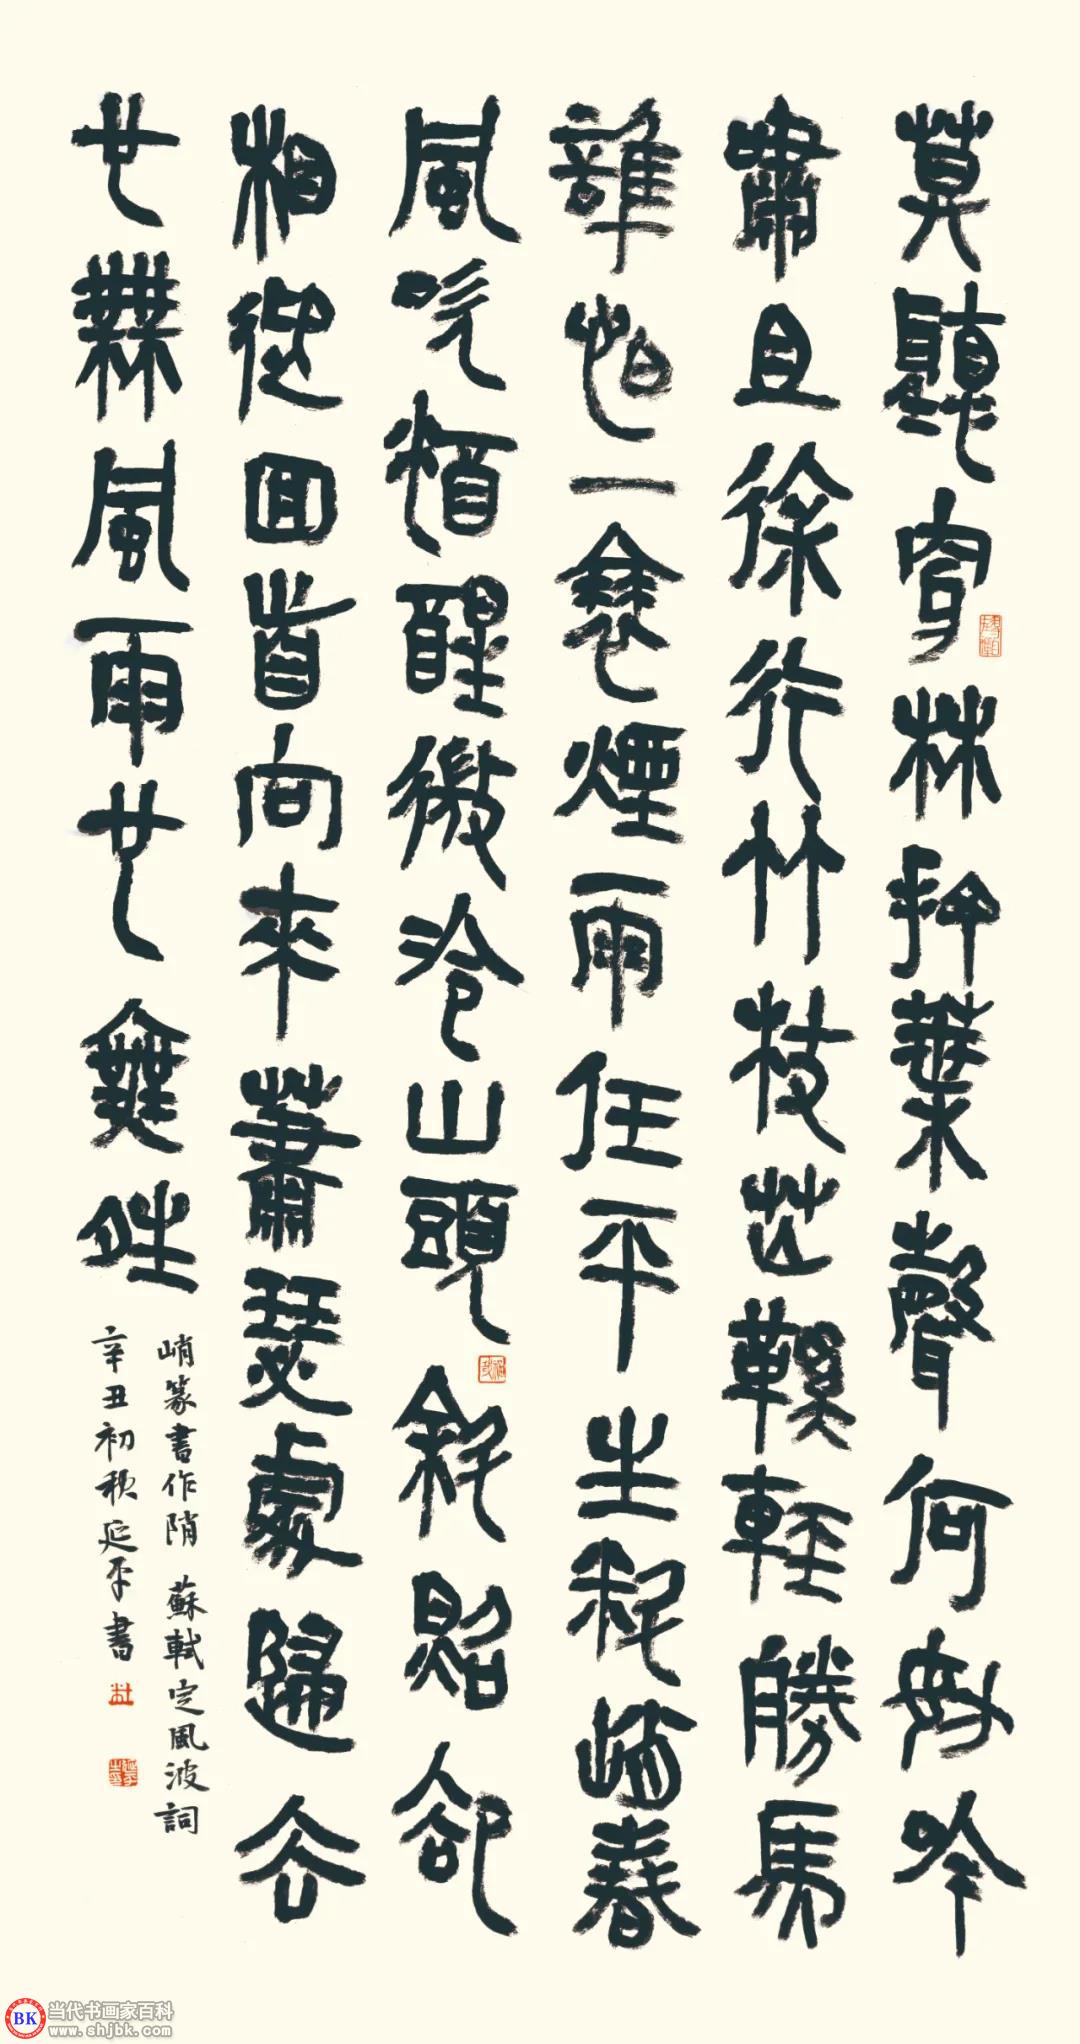 莫聽穿林打葉聲何妨吟
嘯且徐行竹杖芒鞵輕勝馬
誰怕一蓑煙雨任平生料峭春
風吹酒醒微冷山頭斜照卻
相迎回首向來蕭瑟處歸去
也無風雨也無晴
峭篆書作陗 蘇軾定風波詞
辛丑初秋延平書
BK 当代书画家百科
www.shjbk.com